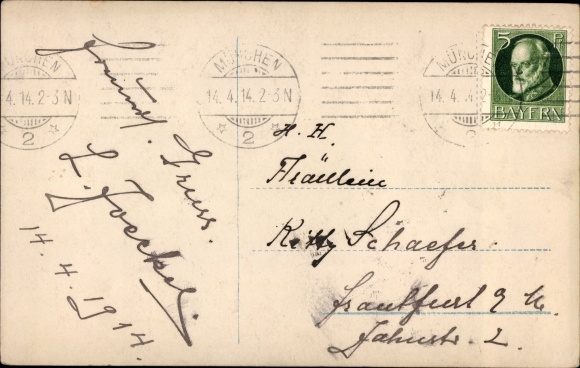 MÜNCHEN
14.4.14.2-3N
2
MÜNCHEN
14.4.14.2-3N
2
MÜNCHEN
2
5 Pf
BAYERN
Freundl. Gruss.
L. Joeckel.
14.4.1914.
H. H.
Fräulein
Kitty Schaefer
Frankfurt a/M.
Jahnstr. 2.